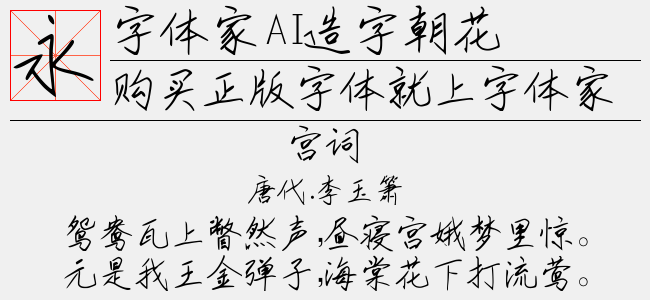 永
字体家AI造字朝花
购买正版字体就上字体家
宫词
唐代.李玉箫
鸳鸯瓦上瞥然声,昼寝宫娥梦里惊。
元是我王金弹子,海棠花下打流莺。